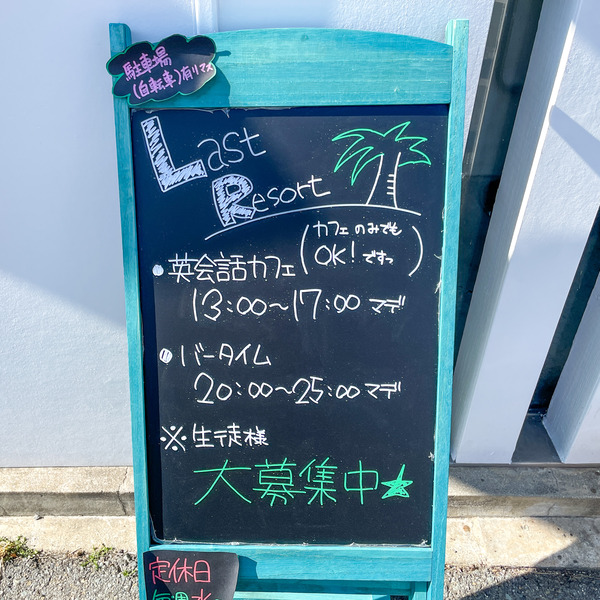 駐車場
(自転車)有リマス
Last
Resort
(カフェのみでも
OK!ですっ)
●英会話カフェ
13:00〜17:00マデ
●バータイム
20:00〜25:00マデ
※生徒様
大募集中★
定休日
毎週水